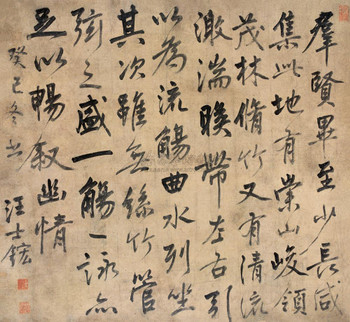 羣賢畢至少長咸
集此地有崇山峻領
茂林脩竹又有清流
激湍暎帶左右引
以為流觴曲水列坐
其次雖无絲竹管
弦之盛一觴一詠亦
足以暢叙幽情
癸巳冬
汪士鋐